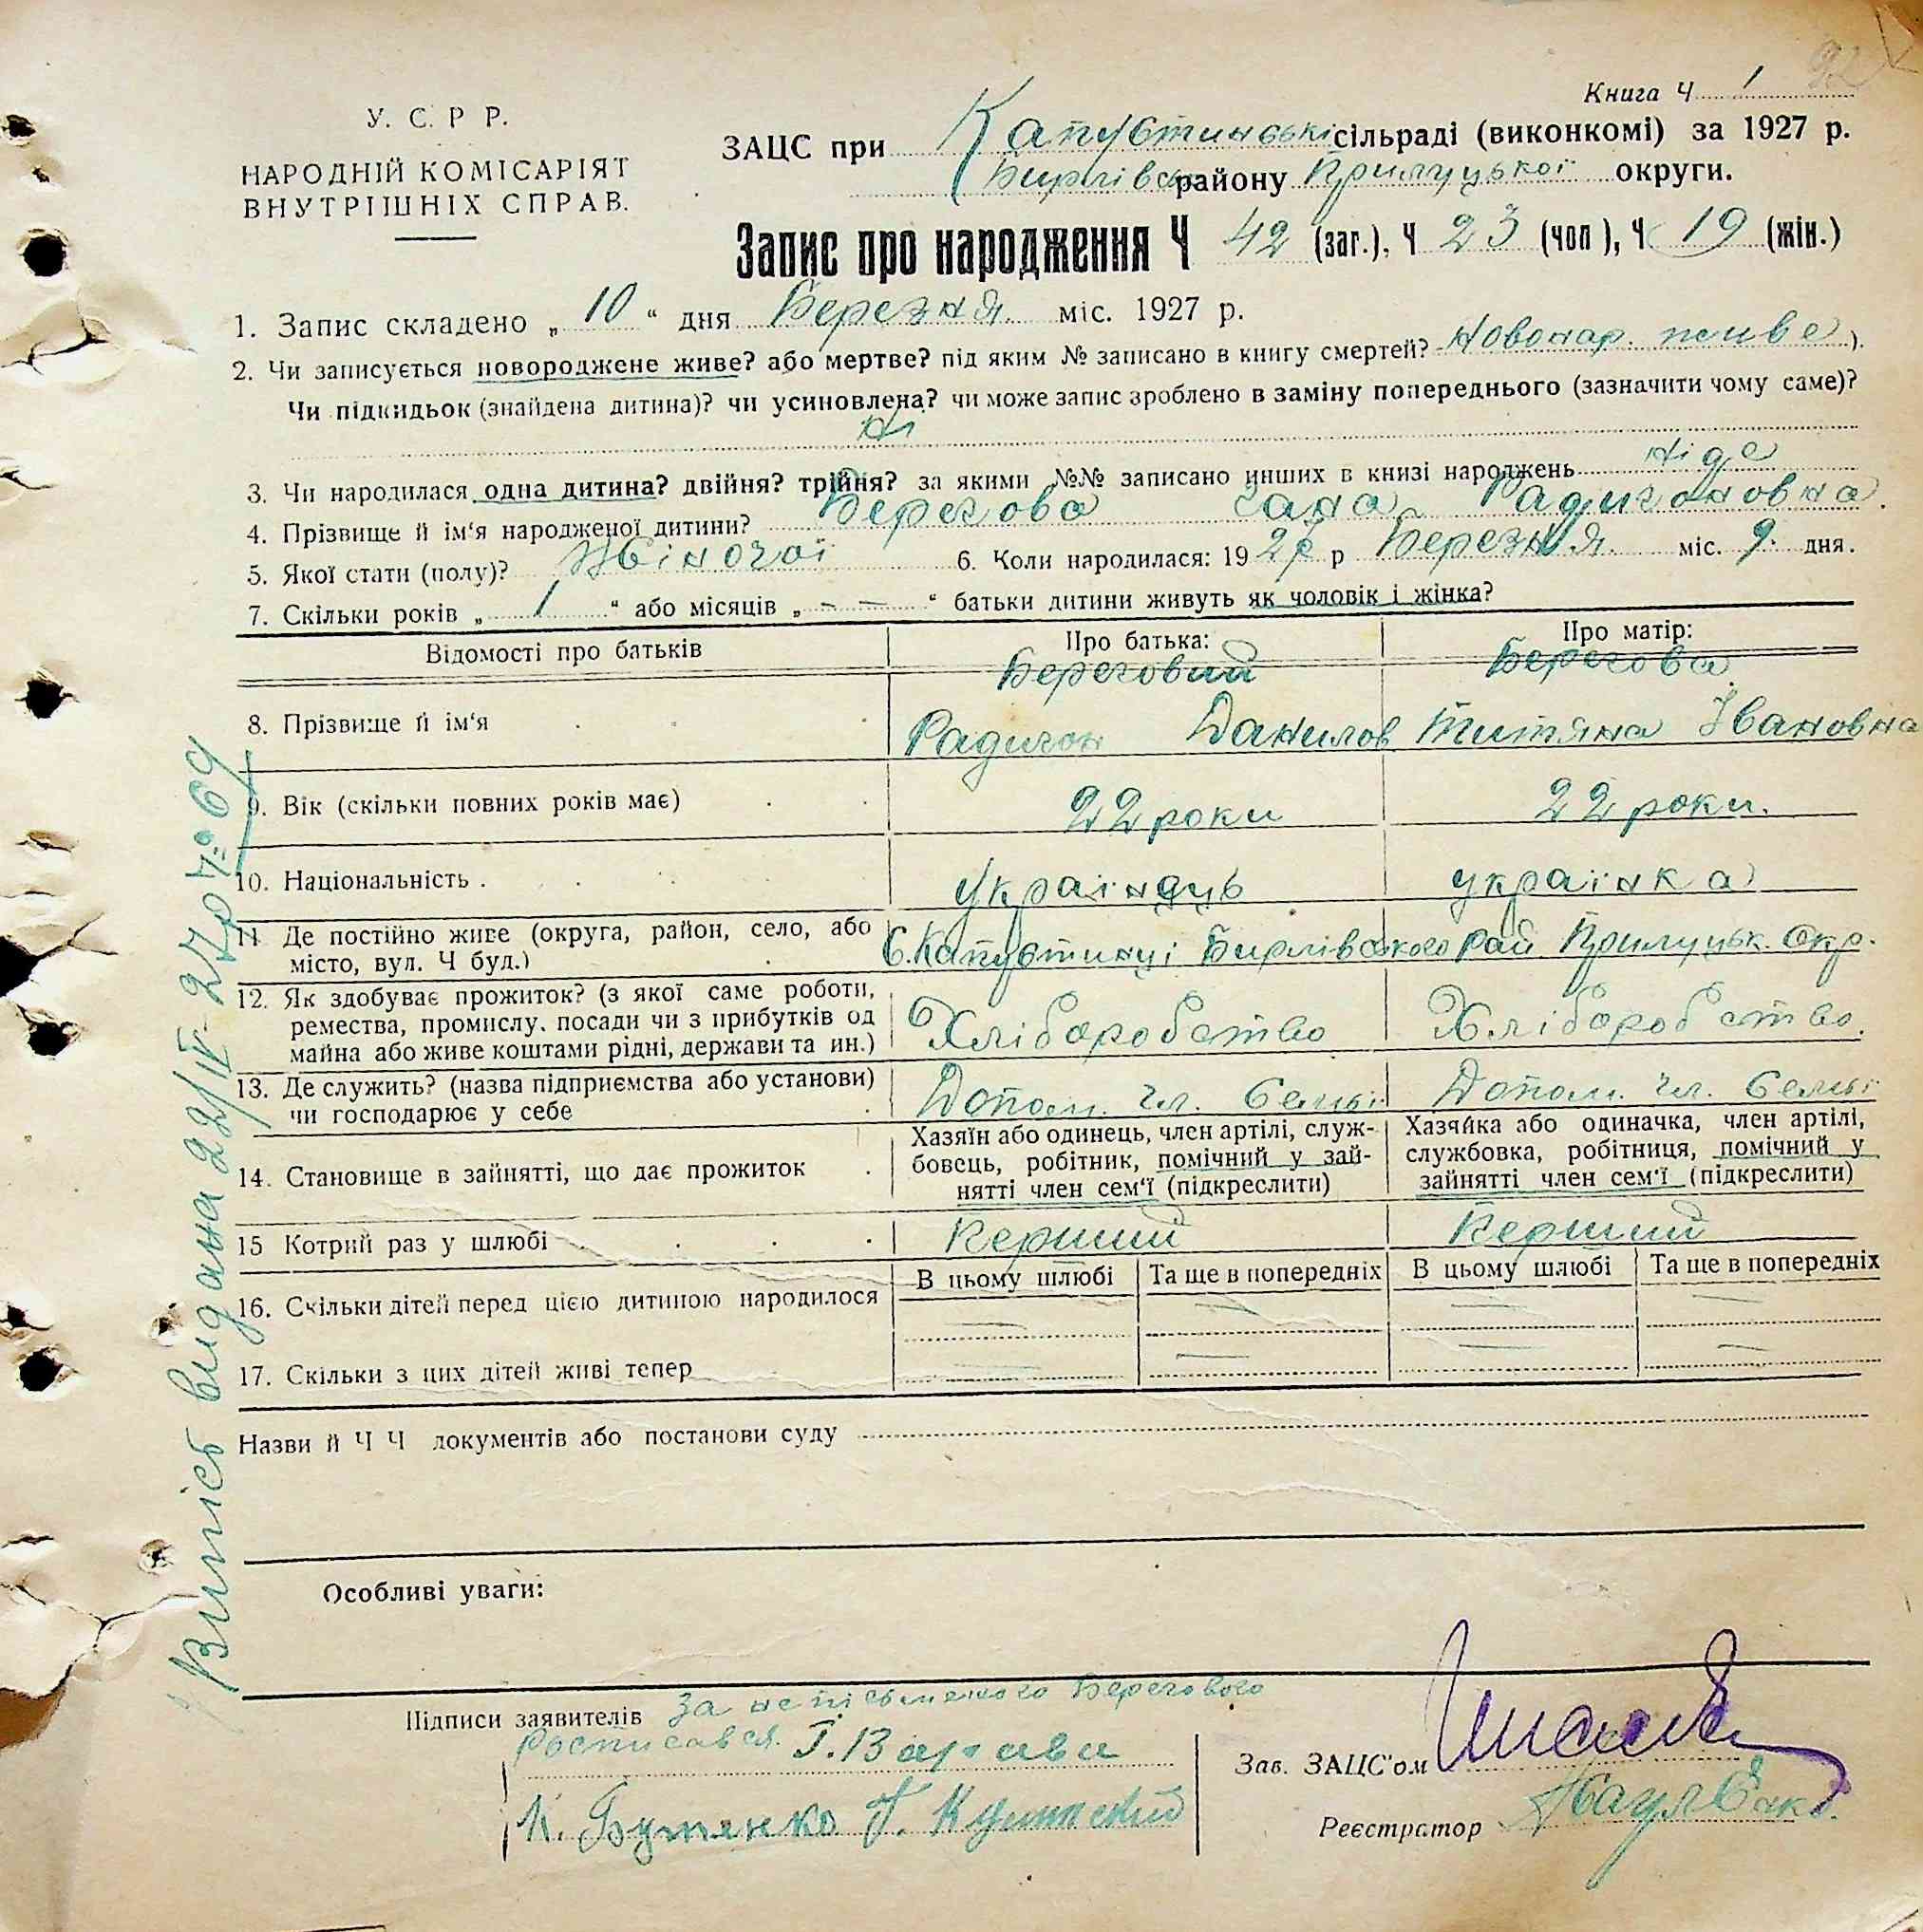 92
Книга Ч 1
У. С. Р Р.
НАРОДНІЙ КОМІСАРІЯТ
ВНУТРІШНІХ СПРАВ.
ЗАЦС при Капустинські сільраді (виконкомі) за 1927 р.
району Прилуцької округи.
Запис про народження Ч 42 (заг.), Ч 23 (чол), Ч 19 (жін.)
1. Запис складено „ 10 “ дня Березня міс. 1927 р.
2. Чи записується новороджене живе? або мертве? під яким № записано в книгу смертей? Новонар. живе).
Чи підкидьок (знайдена дитина)? чи усиновлена? чи може запис зроблено в заміну попереднього (зазначити чому саме)?
Ні
3. Чи народилася одна дитина? двійня? трійня? за якими №№ записано инших в книзі народжень
4. Прізвище й ім‘я народженої дитини? Берегова
5. Якої стати (полу)? Жіночої 6. Коли народилася: 1927 р Березня міс. 9. дня.
7. Скільки років „ 1 “ або місяців „ – – “ батьки дитини живуть як чоловік і жінка?
Відомості про батьків Про батька: Про матір:
Береговий Берегова
8. Прізвище й ім‘я Данилов Титяна Івановна
9. Вік (скільки повних років має) 22 роки 22 роки.
10. Національність . українець українка
11 Де постійно живе (округа, район, село, або
місто, вул. Ч буд.) С. Капустинці Бирлівського рай Прилуцьк. Окр.
12. Як здобуває прожиток? (з якої саме роботи,
ремества, промислу, посади чи з прибутків од
майна або живе коштами рідні, держави та ин.) Хліборобство Хліборобство.
13. Де служить? (назва підприємства або установи)
чи господарює у себе Допом. чл. Семьі Допом. чл. Семьі
14. Становище в зайнятті, що дає прожиток
Хазяїн або одинець, член артілі, служ-
бовець, робітник, помічний у зай-
нятті член сем‘ї (підкреслити)
Хазяйка або одиначка, член артілі,
службовка, робітниця, помічний у
зайнятті член сем‘ї (підкреслити)
15 Котрий раз у шлюбі Перший Перший
В цьому шлюбі Та ще в попередніх В цьому шлюбі Та ще в попередніх
16. Скільки дітей перед цією дитиною народилося — — — —
17. Скільки з цих дітей живі тепер — — — —
Назви й Ч Ч документів або постанови суду
Особливі уваги:
Підписи заявителів За неписьменного Берегового
Росписався
К. Бутенко
Зав. ЗАЦС'ом
Реєстратор
Випісь видана 22/IV- 27р № 69